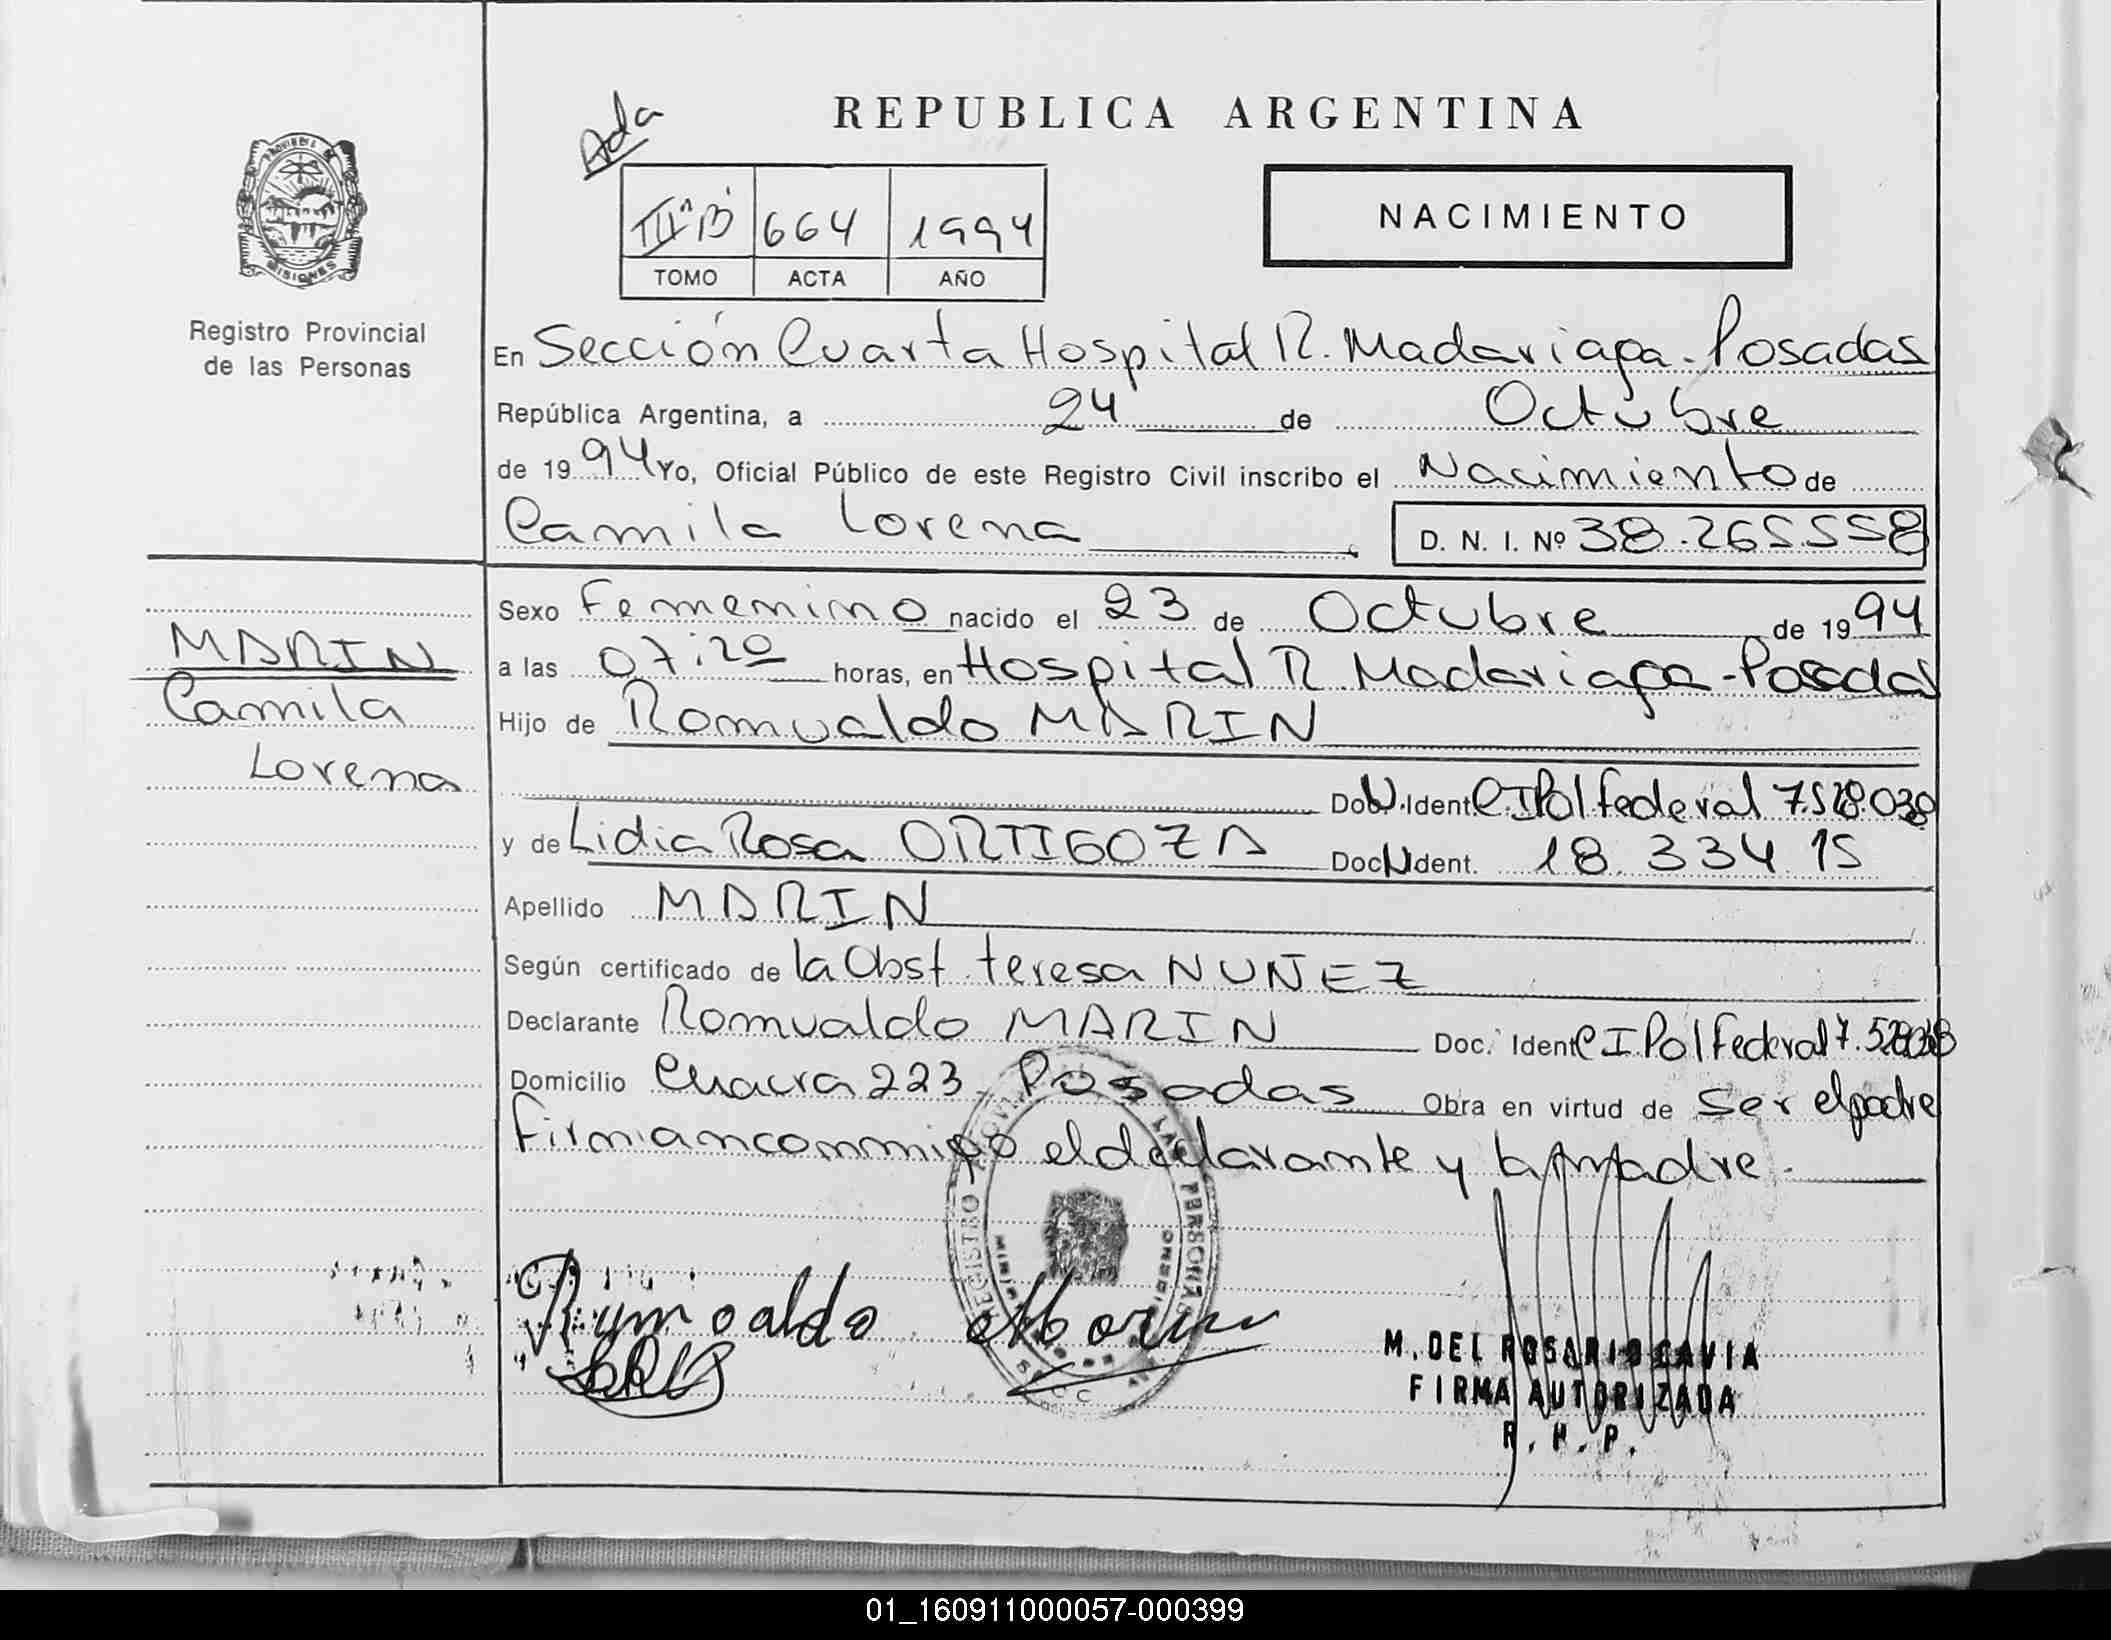 REPUBLICA ARGENTINA
Ada
PROVINCIA DE
MISIONES
Registro Provincial
de las Personas
IIIº B 664 1994
TOMO ACTA AÑO
NACIMIENTO
En Sección Cuarta Hospital R. Madariaga - Posadas
República Argentina, a 24 de Octubre
de 1994 Yo, Oficial Público de este Registro Civil inscribo el Nacimiento de
Camila Lorena
D. N. I. Nº 38.265558
MARIN
Camila
Lorena
Sexo Femenino nacido el 23 de Octubre de 1994
a las 07:20 horas, en Hospital R. Madariaga - Posadas
Hijo de Romualdo MARIN
Doc. Ident. C I Pol Federal 7.528.038
y de Lidia Rosa ORTIGOZA Doc. Ident. 18 334 15
Apellido MARIN
Según certificado de la Obst. teresa NUÑEZ
Declarante Romualdo MARIN Doc. Ident C I. Pol Federal 7.528038
Domicilio Chacra 223 - Posadas Obra en virtud de ser el padre
firman conmigo el declarante y la Madre.
REGISTRO PERSONAS
Rumoaldo Marin
M. DEL ROSARIO CAVIA
FIRMA AUTORIZADA
R. H. P.
01_160911000057-000399